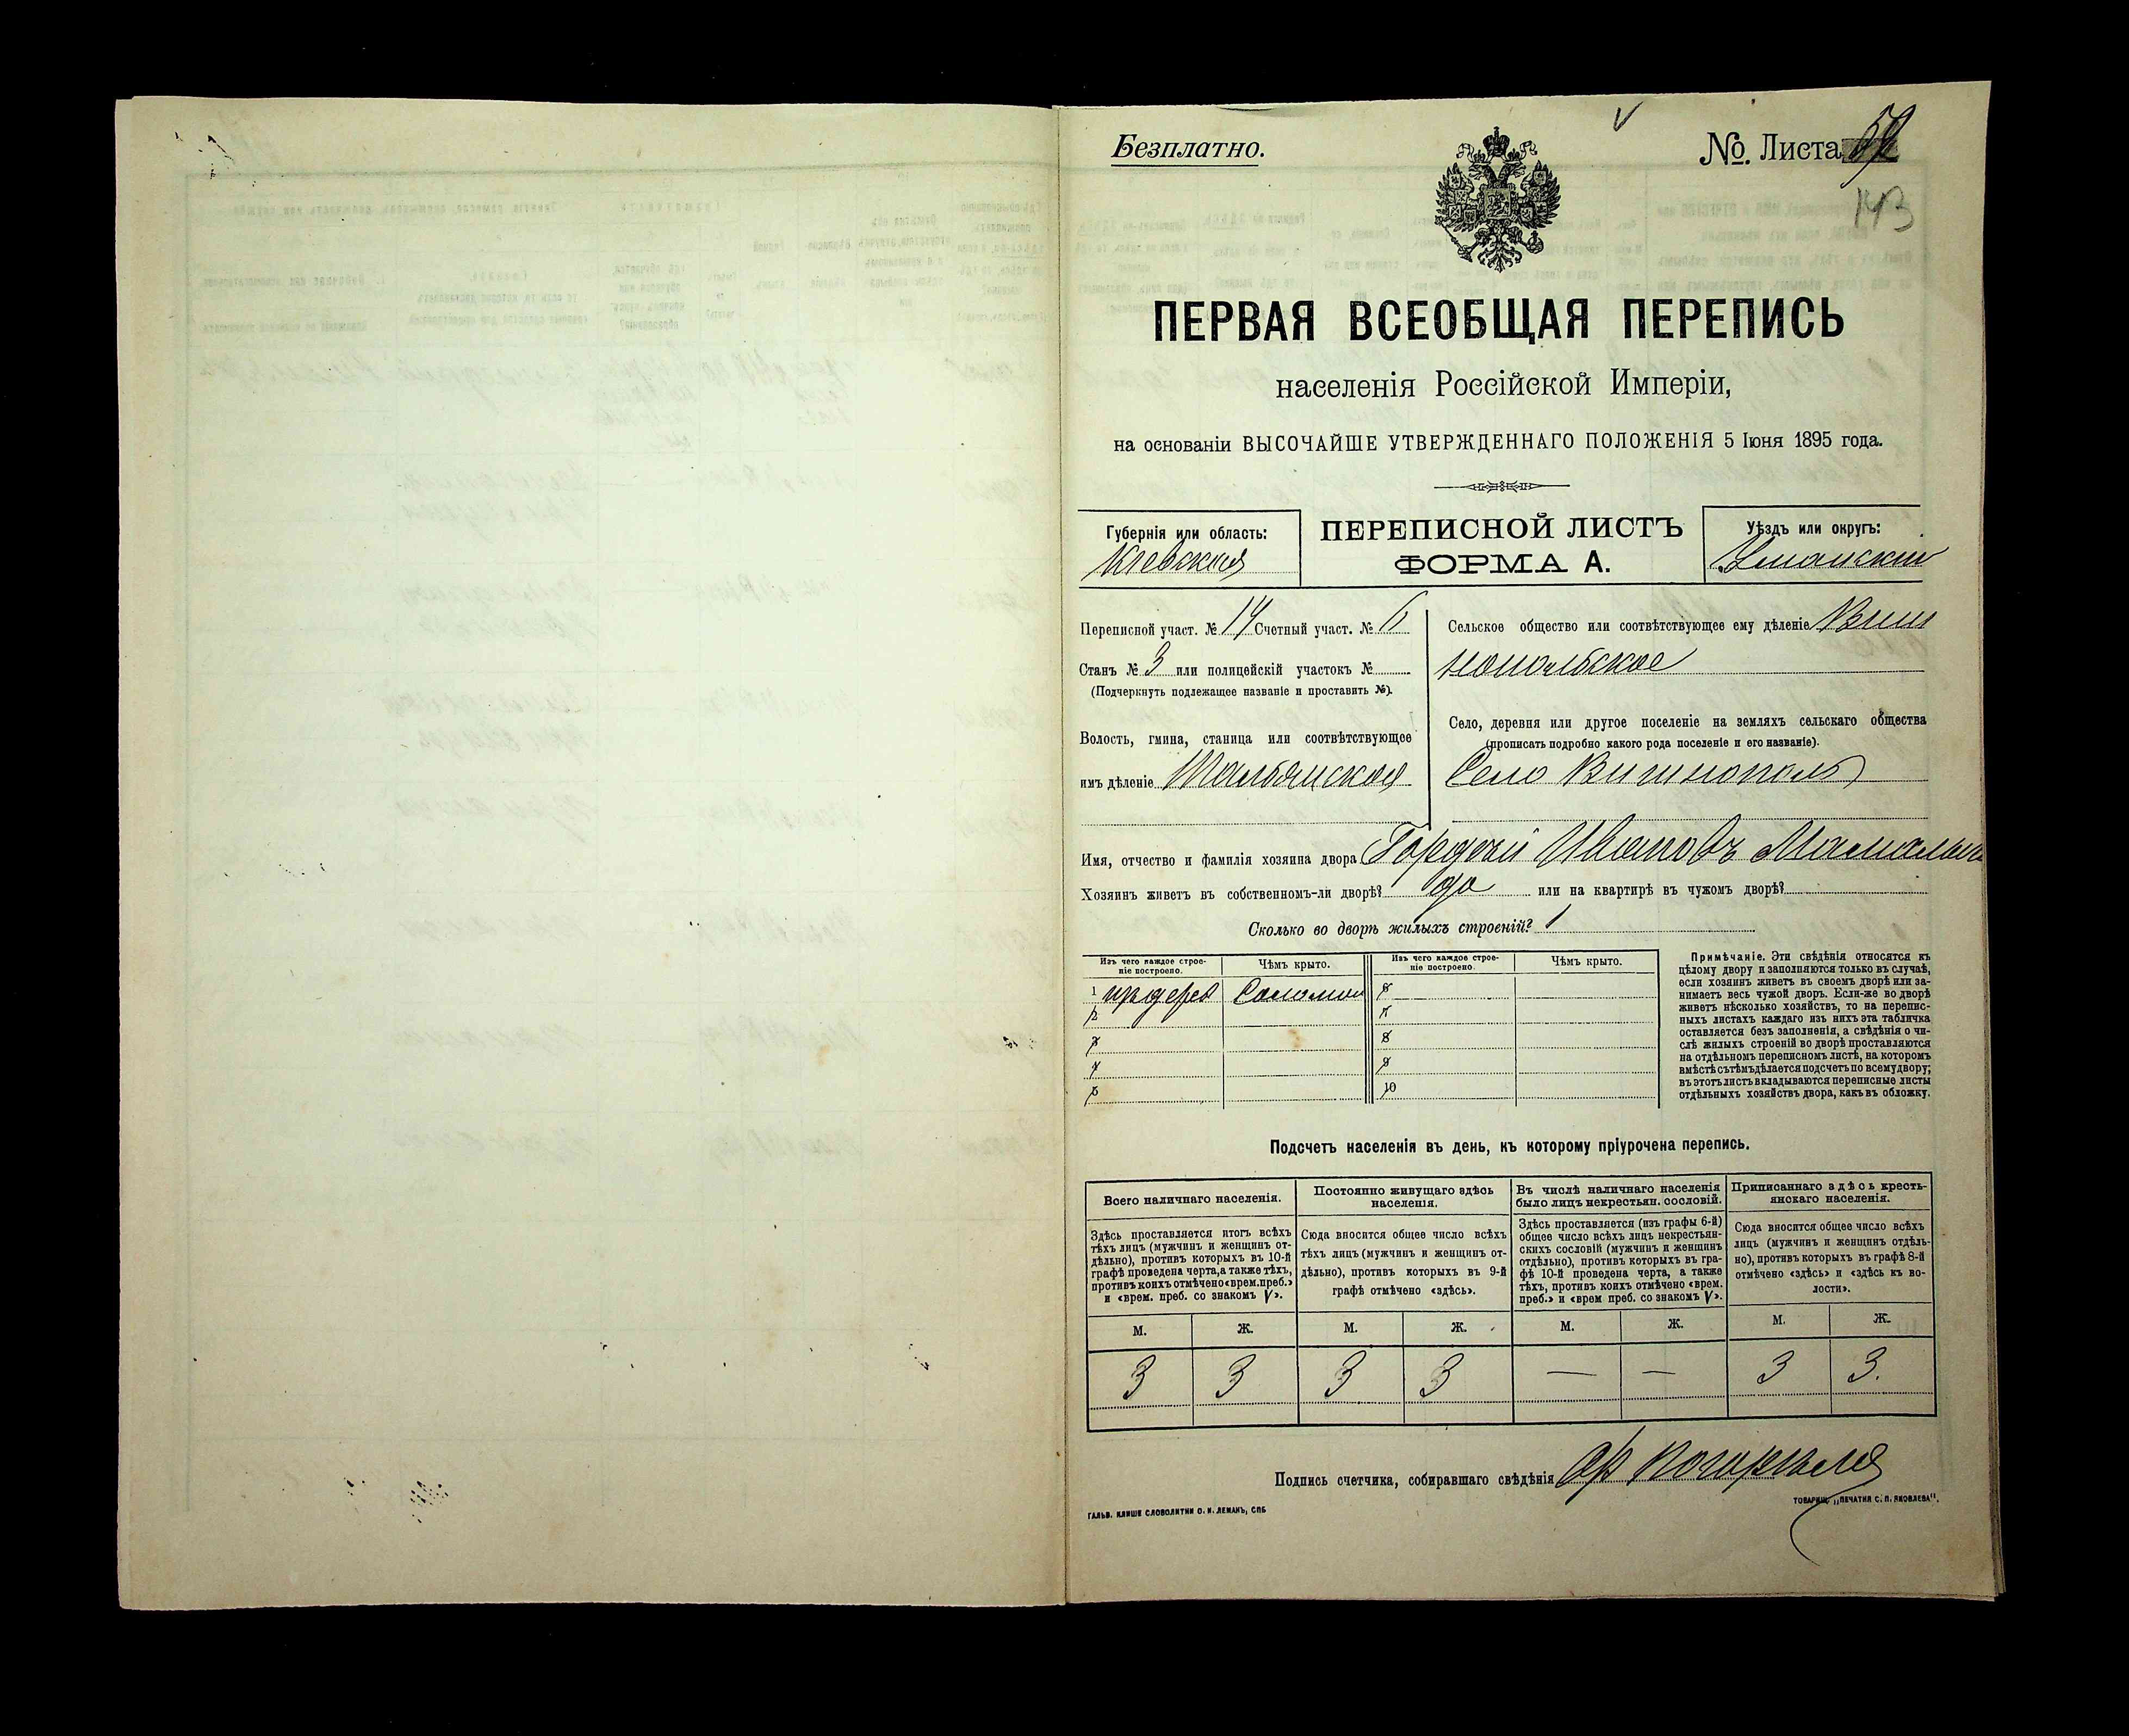 Безплатно.
№. Листа
143
ПЕРВАЯ ВСЕОБЩАЯ ПЕРЕПИСЬ
населенія Россійской Имперіи,
на основаніи ВЫСОЧАЙШЕ УТВЕРЖДЕННАГО ПОЛОЖЕНІЯ 5 Іюня 1895 года.
Губернія или область:
Кіевская
ПЕРЕПИСНОЙ ЛИСТЪ
ФОРМА А.
Уѣздъ или округъ:
Уманскій
Переписной участ. № 14 Счетный участ. №
Станъ № 3 или полицейскій участокъ №
(Подчеркнуть подлежащее названіе и проставить №).
Волость, гмина, станица или соотвѣтствующее
имъ дѣленіе Тальянская
Сельское общество или соотвѣтствующее ему дѣленіе Виш
нопольское
Село, деревня или другое поселеніе на земляхъ сельскаго общества
(прописать подробно какого рода поселеніе и его названіе).
Село Вишнополь
Имя, отчество и фамилія хозяина двора Гордѣй Ивановъ
Хозяинъ живетъ въ собственномъ-ли дворѣ? да или на квартирѣ въ чужомъ дворѣ?
Сколько во дворѣ жилыхъ строеній? 1
Изъ чего каждое строе-
ніе построено.
Чѣмъ крыто.
Изъ чего каждое строе-
ніе построено.
Чѣмъ крыто.
1 изъ дерев Соломой 6
2 7
3 8
4 9
5 10
Примѣчаніе. Эти свѣдѣнія относятся къ
цѣлому двору и заполняются только въ случаѣ,
если хозяинъ живетъ въ своемъ дворѣ или за-
нимаетъ весь чужой дворъ. Если-же во дворѣ
живетъ нѣсколько хозяйствъ, то на перепис-
ныхъ листахъ каждаго изъ нихъ эта табличка
оставляется безъ заполненія, а свѣдѣнія о чи-
слѣ жилыхъ строеній во дворѣ проставляются
на отдѣльномъ переписномъ листѣ, на которомъ
вмѣстѣ съ тѣмъ дѣлается подсчетъ по всему двору;
въ этотъ листъ вкладываются переписные листы
отдѣльныхъ хозяйствъ двора, какъ въ обложку.
Подсчетъ населенія въ день, къ которому пріурочена перепись.
Всего наличнаго населенія.
Здѣсь проставляется итогъ всѣхъ
тѣхъ лицъ (мужчинъ и женщинъ от-
дѣльно), противъ которыхъ въ 10-й
графѣ проведена черта, а также тѣхъ,
противъ коихъ отмѣчено «врем. преб.»
и «врем. преб. со знакомъ V».
Постоянно живущаго здѣсь
населенія.
Сюда вносится общее число всѣхъ
тѣхъ лицъ (мужчинъ и женщинъ от-
дѣльно), противъ которыхъ въ 9-й
графѣ отмѣчено «здѣсь».
Въ числѣ наличнаго населенія
было лицъ некрестьян. сословій.
Здѣсь проставляется (изъ графы 6-й)
общее число всѣхъ лицъ некрестьян-
скихъ сословій (мужчинъ и женщинъ
отдѣльно), противъ которыхъ въ гра-
фѣ 10-й проведена черта, а также
тѣхъ, противъ коихъ отмѣчено «врем.
преб.» и «врем преб. со знакомъ V».
Приписаннаго здѣсь кресть-
янскаго населенія.
Сюда вносится общее число всѣхъ
лицъ (мужчинъ и женщинъ отдѣль-
но), противъ которыхъ въ графѣ 8-й
отмѣчено «здѣсь» и «здѣсь къ во-
лости».
М. Ж. М. Ж. М. Ж. М. Ж.
3 3 3 3 — — 3 3.
Подпись счетчика, собиравшаго свѣдѣнія
ГАЛЬВ. КЛИШЕ СЛОВОЛИТНИ О. И. ЛЕМАНЪ, СПБ
ТОВАРИЩ. „ПЕЧАТНЯ С. П. ЯКОВЛЕВА".